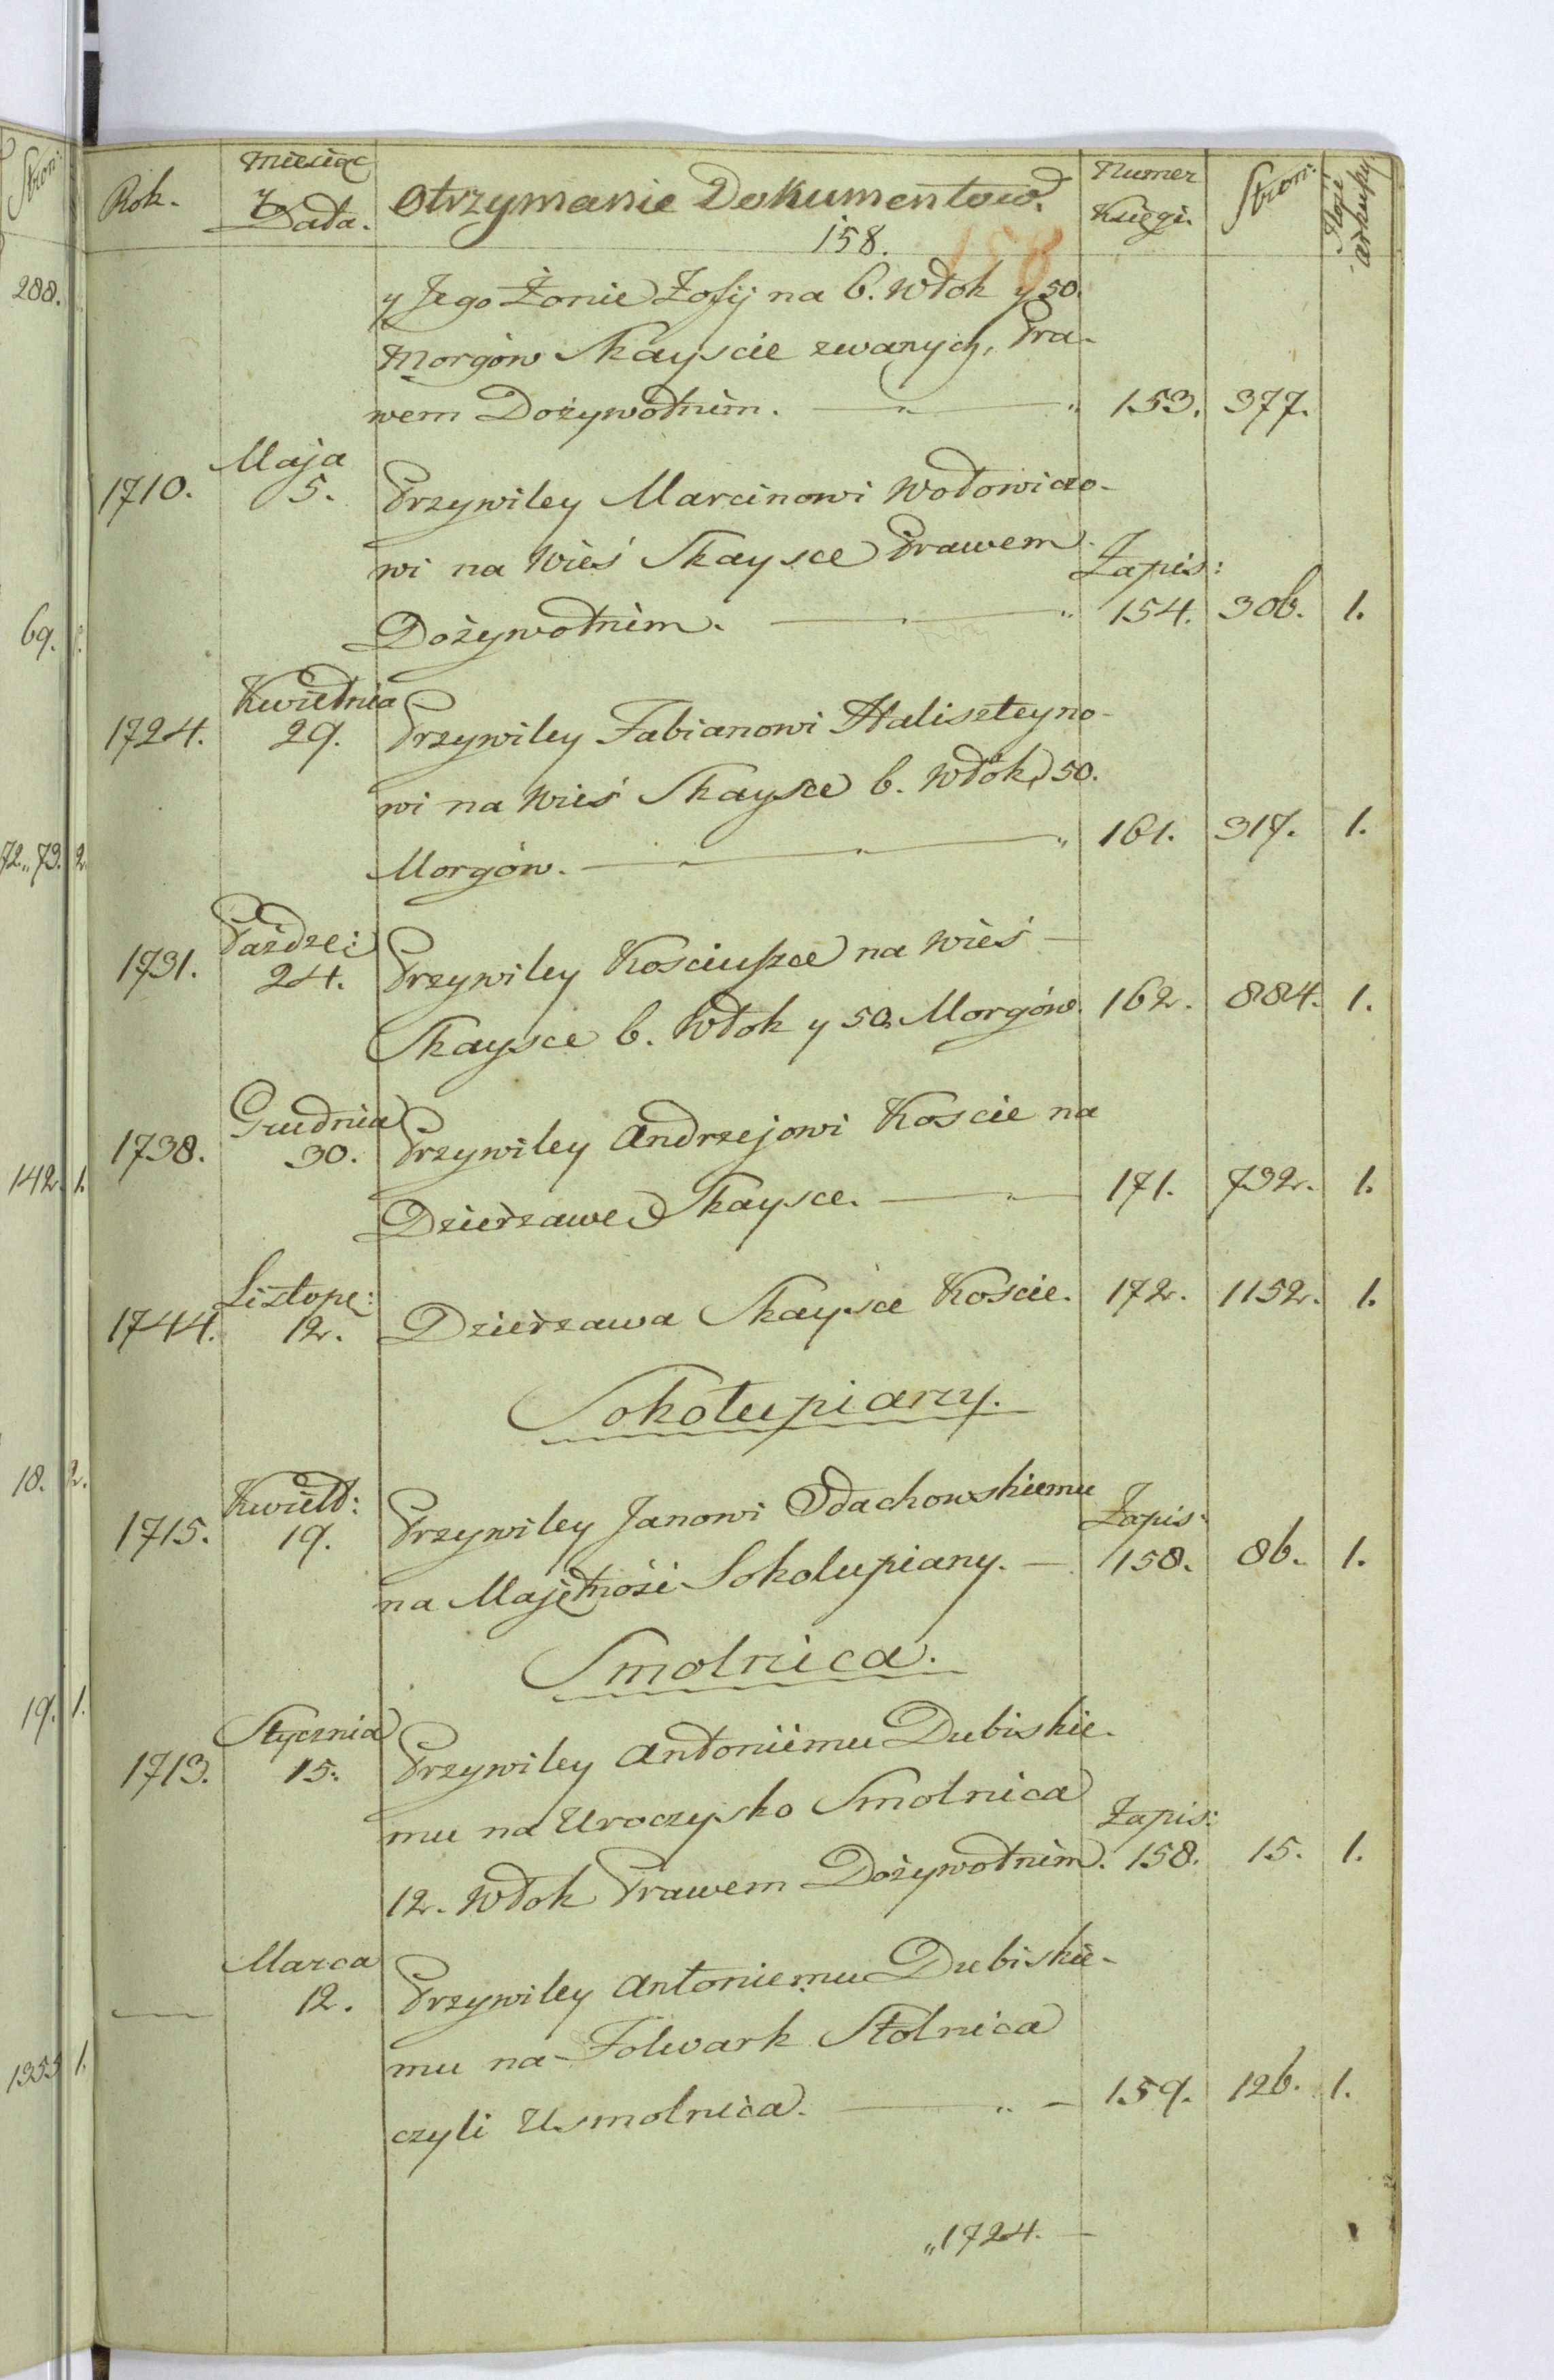 Stron:
Rok.
Miesiąc
y
Data.
Otrzymanie Dokumentow.
Numer
Księgi.
Stron:
arkuszy
158.
158
288.
y Jego Żonie Zofij na 6. Włok y 50.
Morgów Skayscie zwanych, Pra-
wem Dożywotnim. 153. 377.
Maja
1710. 5. Przywiley Marcinowi Wołowiczo-
wi na Wieś Skaysce Prawem Zapis:
Dożywotnim. 154. 306. 1.
69.
Kwietnia
1724. 29. Przywiley Fabianowi Haliszteyno-
wi na Wieś Skaysce 6. Włók, 50.
Morgów. 161. 317. 1.
72.,, 73. 2.
Paźdze:
1731. 24. Przywiley Kosciuszce na Wieś
Skaysce 6. Włok y 50. Morgów. 162. 884. 1.
Grudnia
1738. 30. Przywiley Andrzejowi Koscie na
Dzierżawe Skaysce. 171. 732. 1.
142. 1.
Listopa:
1744. 12. Dzierżawa Skaysce Koscie. 172. 1152. 1.
Sokołupiany.
18. 2.
Kwiet:
1715. 19. Przywiley Janowi Odachowskiemu Zapis:
na Majętność Sokolupiany. 158. 86. 1.
Smolnica.
19. 1.
Stycznia
1713. 15. Przywiley Antoniemu Dubiskie-
mu na Uroczysko Smolnica Zapis:
12. Włok Prawem Dożywotnim. 158. 15. 1.
Marca
12. Przywiley Antoniemu Dubiskie-
mu na Folwark Stolnica
czyli Usmolnica. 159. 126. 1.
1355 1.
,,1724.